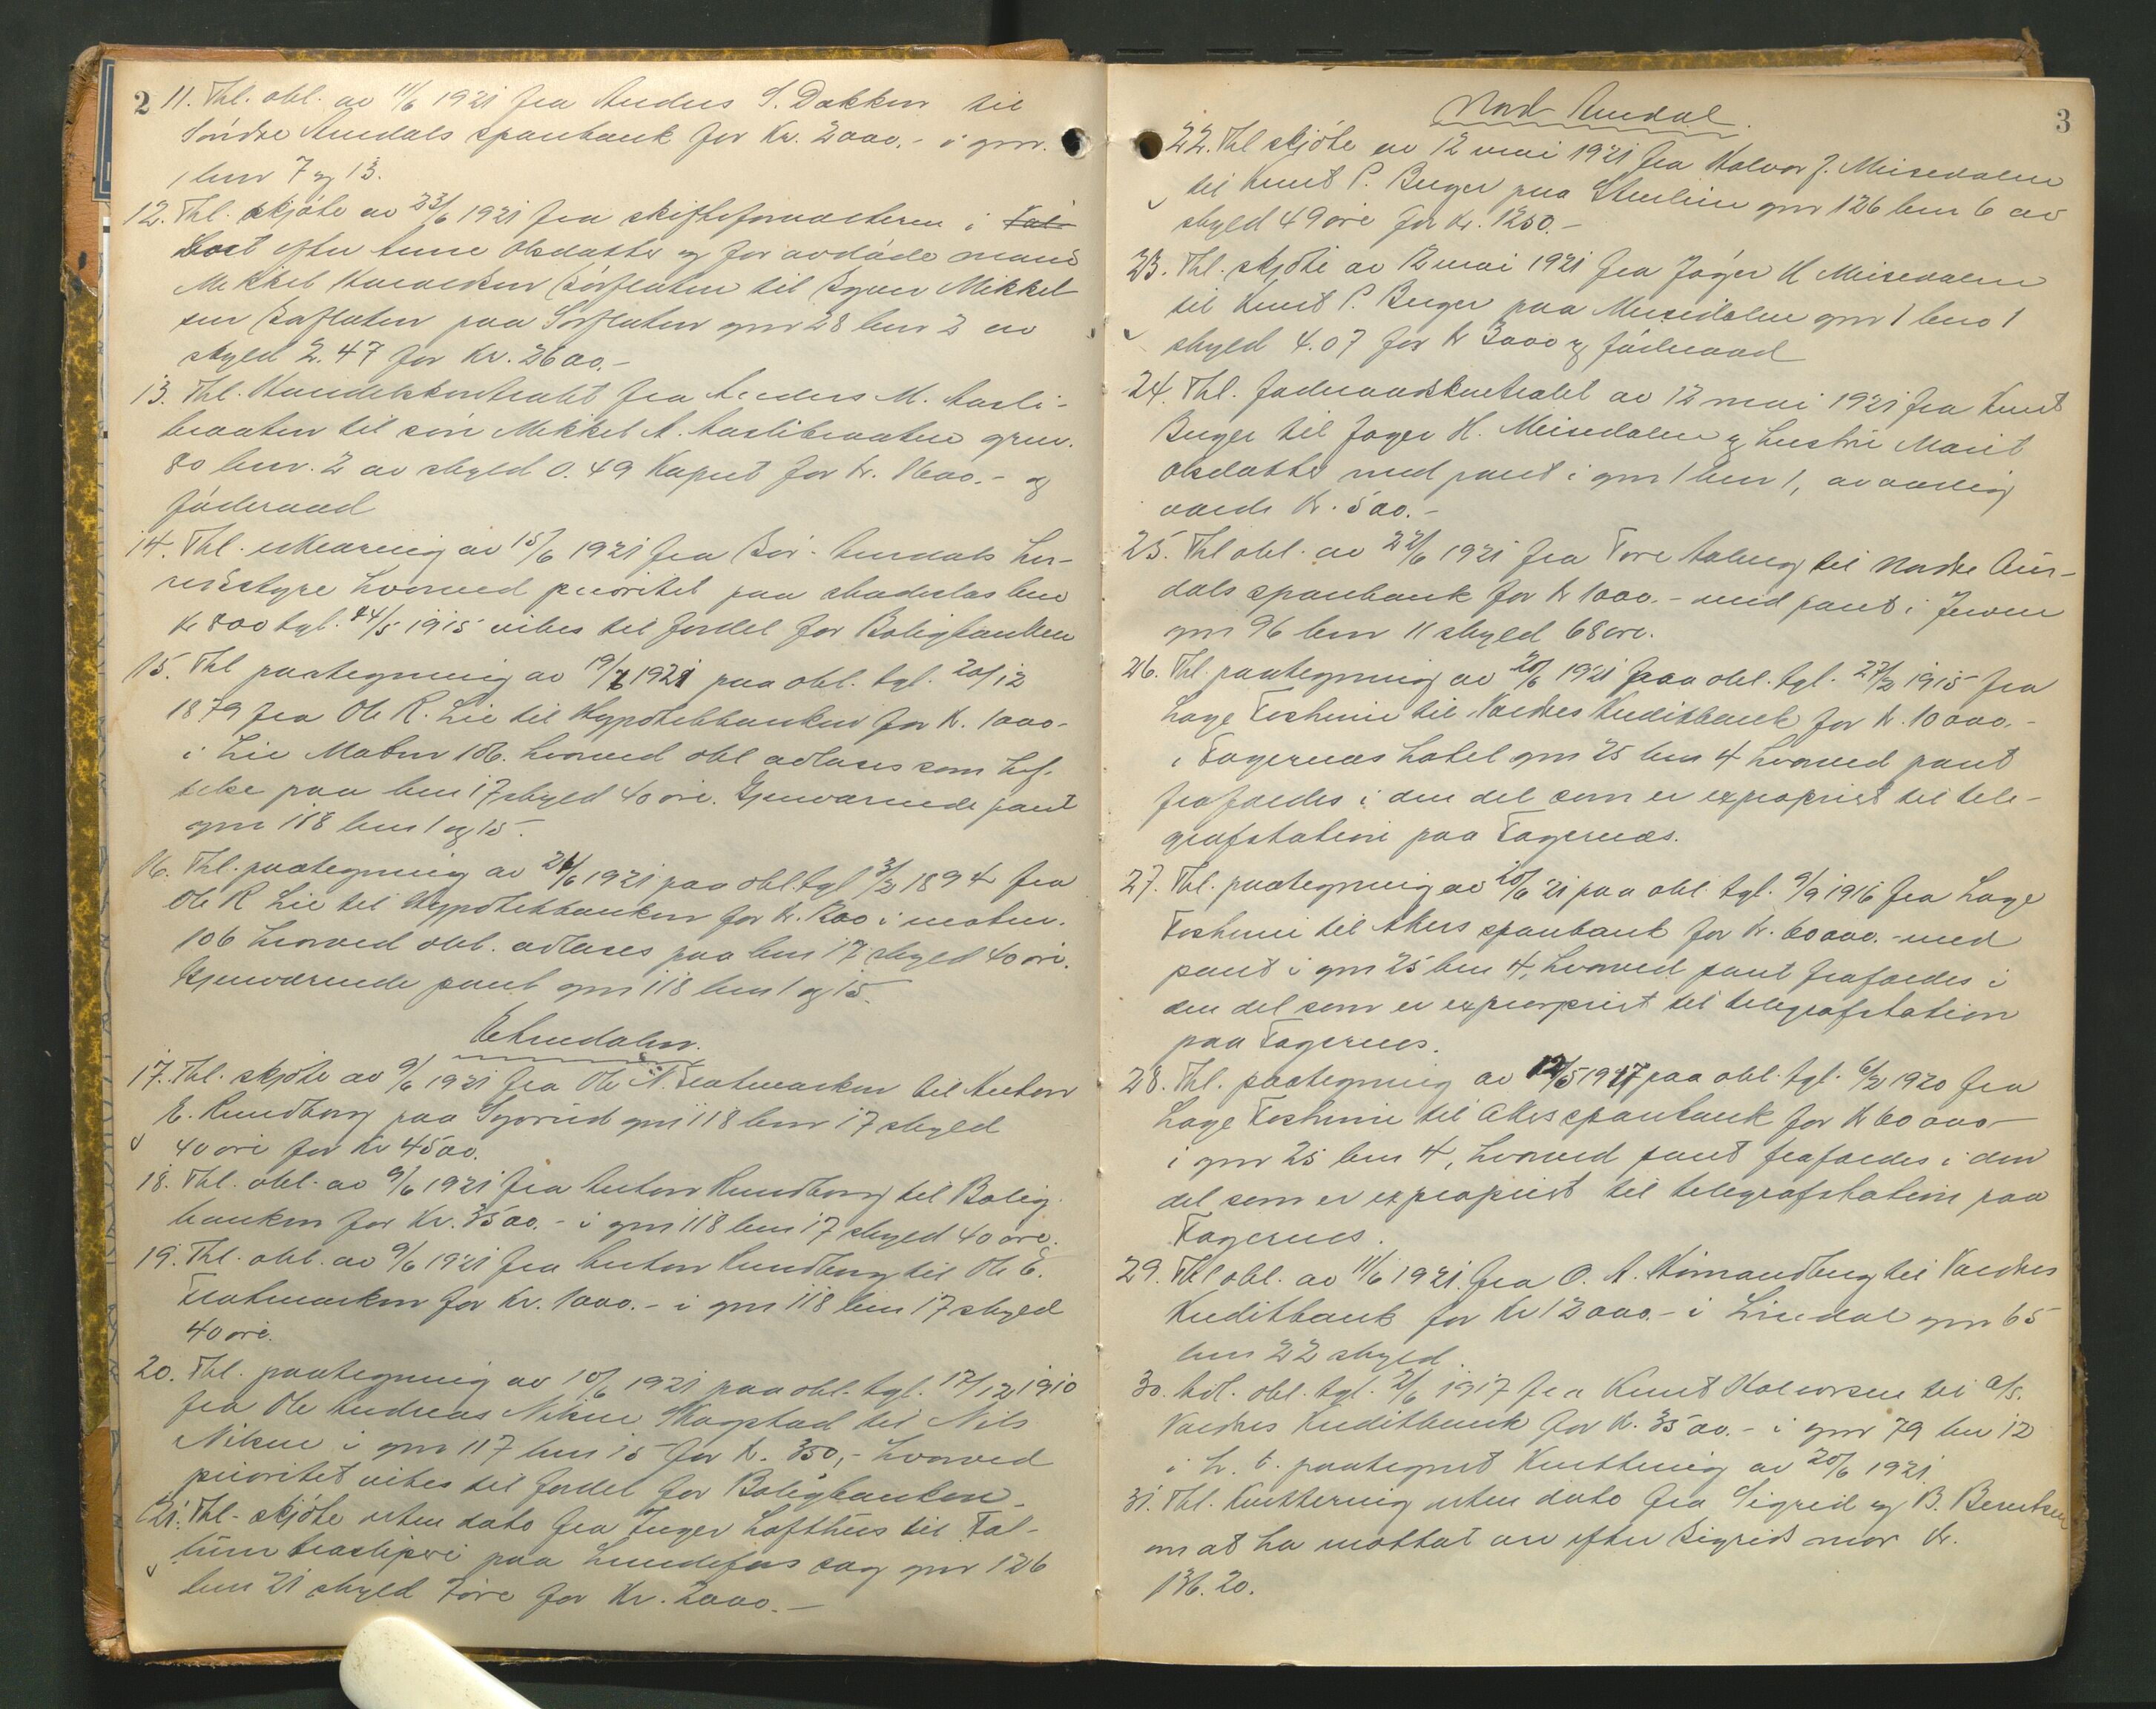 2
11. Thl. obl. av 11/6 1921 fra Anders S. Dokken til
Söndre Aurdals sparebank for Kr. 2000.- i gnr.
1 bnr 7 og 13.
12. Thl. skjöte av 23/6 1921 fra skifteforvalteren i
boet efter Anne Olsdatter og for avdöde mand
Mikkel til Syver Mikkel-
sen paa Sörflaten gnr 28 bnr 2 av
skyld 2.47 for Kr. 2600.-
13. Thl. Handelskontrakt fra Anders M. Aasli-
braaten til sön Mikkel A. Aaslibraaten gnr.
80 bnr. 2 av skyld 0.49 Kaput for kr. 1600.- og
föderaad
14. Thl. erklæring av 15/6 1921 fra Sör-Aurdals her-
redsstyre hvorved prioritet paa skadeslösbrev
kr 800 tgl. 24/5 1915 vikes til fordel for Boligbanken
15. Thl paategning av 19/6 1921 paa obl. tgl. 20/12
1879 fra Ole R. Lie til Hypothekbanken for K. 1000-
i Lie Matnr 106. hvorved obl avlæses som hef-
telse paa bnr 17 skyld 40 öre. Gjenværende pant
gnr 118 bnr 1 og 15.
16. Thl. paategning av 21/6 1921 paa obl. tgl 3/2 1894 fra
Ole R Lie til Hypothekbanken for kr. 1200 i matnr.
106 hvorved obl. avlæses paa bnr 17 skyld 40 öre.
Gjenværende pant gnr 118 bnr 1 og 15.
Etnedalen.
17. Thl. skjöte av 9/6 1921 fra Ole N. Fratmarken til Anton
E. Rundborg paa gnr 118 bnr 17 skyld
40 öre for Kr 4500.
18. Thl. obl. av 9/6 1921 fra Anton Rundborg til Bolig
banken for Kr. 3500.- i gnr 118 bnr 17 skyld 40 öre.
19. Thl. obl. av 9/6 1921 fra Anton Rundborg til Ole E.
for Kr. 1000.- i gnr 118 bnr 17 skyld
40 öre.
20. Thl. paategning av 10/6 1921 paa obl. tgl. 12/12 1910
fra Ole Andreas Nilsen Skogstad til Nils
Nilsen i gnr 117 bnr 15 for K. 350,- hvorved
prioritet vikes til fordel for Boligbanken.
21. Thl. skjöte uten dato fra Inger Lofthus til Fal-
lum træsliperi paa Lundefos sag gnr 126
bnr 21 skyld 7 öre for Kr. 2000.-
3
Nord Aurdal.
22. Thl skjöte av 12 mai 1921 fra Halvor J. Meisedalen
til Knut P. Bergo paa gnr 126 bnr 6 av
skyld 49 öre for kr. 1250.-
23. Thl. skjöte av 12 mai 1921 fra Jöger H Meisedalen
til Knut P. Bergo paa Meisdalen gnr 1 bno 1
skyld 4.07 for kr 3000 og föderaad
24. Thl. föderaadskontrakt av 12 mai 1921 fra Knut
Berger til Joger H. Meisedalen og hustru Marit
Olsdatter med pant i gnr 1 bnr 1, av aarlig
værdi kr. 500.-
25. Thl obl. av 22/6 1921 fra Tore til Nordre Aur-
dals sparebank for kr 1000.- med pant i
gnr 96 bnr 11 skyld 68 öre.
26. Thl. paategning av 20/6 1921 paa obl. tgl. 27/2 1915 fra
Lage Fosheim til Valdres Kreditbank for kr. 10000.-
i Fagernæs hotel gnr 25 bnr 4 hvorved pant
frafaldes i den del som er expropriert til tele-
grafstation paa Fagernæs.
27. Thl. paategning av 20/6 21 paa obl. tgl. 9/9 1916 fra Lage
Fosheim til Akers sparebank for kr. 60000.- med
pant i gnr 25 bnr 4, hvorved pant frafaldes i
den del som er expropriert til telegrafstation
paa Fagernes.
28. Thl. paategning av 12/5 1917 paa obl. tgl. 6/2 1920 fra
Lage Fosheim til Akers sparebank for kr 60000-
i gnr 25 bnr 4, hvorved pant frafaldes i den
del som er expropriert til telegrafstation paa
Fagernes.
29. Thl obl. av 11/6 1921 fra O. A. til Valdres
Kreditbank for kr 12000.- i Lindal gnr 65
bnr 22 skyld.
30. Avl. obl. tgl. 2/6 1917 fra Knut Halvorsen til A/S.
Valdres Kreditbank for K. 3500.- i gnr 79 bnr 12
i h. t. paategnet Kvittering av 20/6 1921.
31. Thl. Kvittering uten dato fra Sigrid og B. Berntsen
om at ha mottat arv efter Sigrids mor Kr.
136.20.